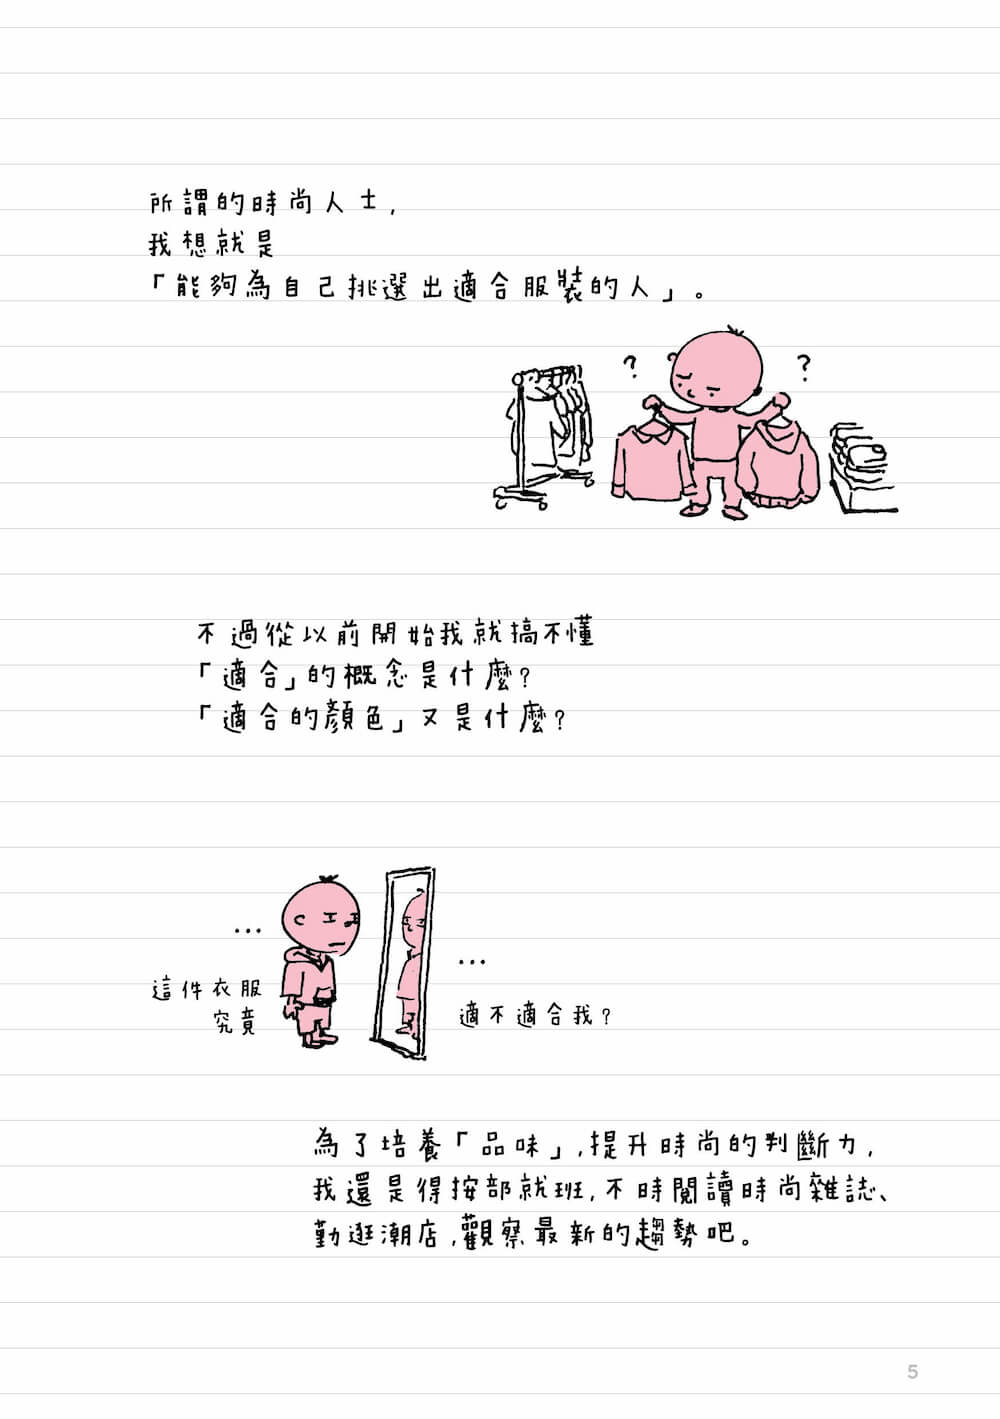 所謂的時尚人士,
我想就是
「能夠為自己挑選出適合服裝的人」。
?
?
不過從以前開始我就搞不懂
「適合」的概念是什麼?
「適合的顏色」又是什麼?
...
這件衣服
究竟
...
適不適合我?
為了培養「品味」,提升時尚的判斷力,
我還是得按部就班,不時閱讀時尚雜誌、
勤逛潮店,觀察最新的趨勢吧。
5